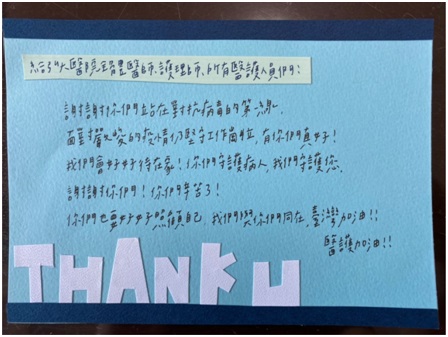 給 醫院全體醫師、護理師、所有醫護人員們:
謝謝你們站在對抗病毒的第一線,
面對嚴峻的疫情仍堅守工作崗位,有你們真好!
我們會好好待在家!你們守護病人,我們守護您,
謝謝你們!你們辛苦了!
你們也要好好照顧自己,我們與你們同在,臺灣加油!!
醫護加油!!
THANK U